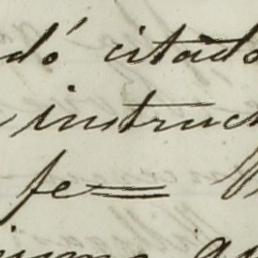 dó citado
instruc
fe=